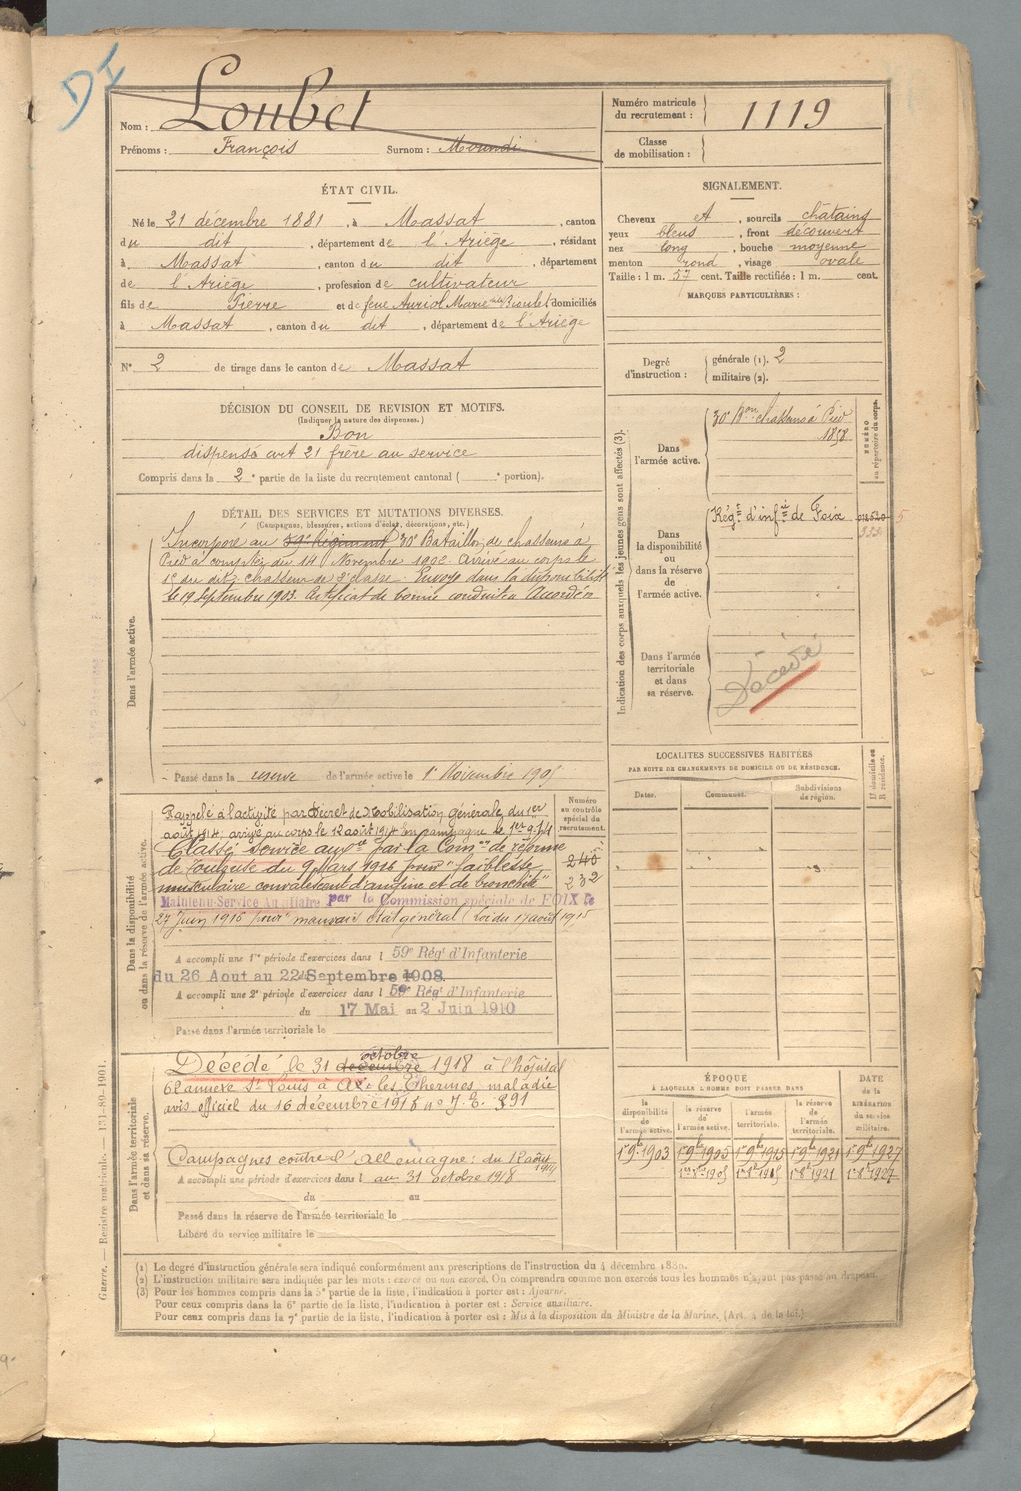 DI
Nom : Loubet
Prénoms : François Surnom : Moundi
Numéro matricule du recrutement : 1119
Classe de mobilisation :
ÉTAT CIVIL.
Né le 21 décembre 1881, à Massat, canton
du dit, département de l'Ariège, résidant
à Massat, canton du dit, département
de l'Ariège, profession de cultivateur
fils de Pierre et de feue Auriol Marie domiciliés
à Massat, canton du dit, département de l'Ariège
N° 2 de tirage dans le canton de Massat
SIGNALEMENT.
Cheveux et, sourcils châtains
yeux bleus, front découvert
nez long, bouche moyenne
menton rond, visage ovale
Taille : 1 m. 57 cent. Taille rectifiée : 1 m. cent.
MARQUES PARTICULIÈRES :
Degré d'instruction : générale (1). 2
militaire (2).
DÉCISION DU CONSEIL DE REVISION ET MOTIFS.
(Indiquer la nature des dispenses.)
Bon
dispensé art 21 frère au service
Compris dans la 2e partie de la liste du recrutement cantonal ( e portion).
DÉTAIL DES SERVICES ET MUTATIONS DIVERSES.
(Campagnes, blessures, actions d'éclat, décorations, etc.)
Dans l'armée active.
Incorporé au 59e Régiment 30e Bataillon de chasseurs à
Pied à compter du 14 Novembre 1902. Arrivé au corps le
et du dit, chasseur de 2e classe. Envoyé dans la disponibilité
le 19 Septembre 1903. Certificat de bonne conduite Accordé
Passé dans la reserve de l'armée active le 1er Novembre 1905
Indication des corps auxquels les jeunes gens sont affectés (3).
NUMÉRO au répertoire du corps.
Dans l'armée active.
30e Bon chasseurs à Pied
1858
Dans la disponibilité ou dans la réserve de l'armée active.
Régt d'infie de Foix
Dans l'armée territoriale et dans sa réserve.
Décédé
LOCALITÉS SUCCESSIVES HABITÉES
PAR SUITE DE CHANGEMENTS DE DOMICILE OU DE RÉSIDENCE.
Dates.
Communes.
Subdivisions de région.
D domicile ou R résidence.
Dans la disponibilité ou dans la réserve de l'armée active.
Numéro au contrôle spécial du recrutement.
240
232
Rappelé à l'activité par Décret de Mobilisation générale du 1er
août 1914, arrivé au corps le 12 août 1914
Classé service auxre par la Comon de réforme
de Toulouse du 9 Mars 1916 pour "faiblesse
musculaire convalescent d'angine et de bronchite"
Maintenu Service Auxiliaire par la Commission spéciale de FOIX le
27 Juin 1916 pour mauvais état général (Loi du 17 août 1915
A accompli une 1re période d'exercices dans l 59e Régt d'Infanterie
du 26 Aout au 22 Septembre 1908
A accompli une 2e période d'exercices dans l 59e Régt d'Infanterie
du 17 Mai au 2 Juin 1910
Passé dans l'armée territoriale le
Dans l'armée territoriale et dans sa réserve.
octobre
Décédé le 31 decembre 1918 à l'hôpital
62 annexe St Louis à Ax-les Thermes, maladie
avis officiel du 16 décembre 1918 n° 391
Campagnes contre l'Allemagne : du 12 août
1914
A accompli une période d'exercices dans l au 31 octobre 1918
du au
Passé dans la réserve de l'armée territoriale le
Libéré du service militaire le
ÉPOQUE
À LAQUELLE L'HOMME DOIT PASSER DANS
DATE de la LIBÉRATION du service militaire.
la disponibilité de l'armée active.
la réserve de l'armée active.
l'armée territoriale.
la réserve de l'armée territoriale.
1er 9bre 1903 1er 9bre 1905 1er 9bre 1915 1er 9bre 1921 1er 9bre 1927
(1) Le degré d'instruction générale sera indiqué conformément aux prescriptions de l'instruction du 4 décembre 1889.
(2) L'instruction militaire sera indiquée par les mots : exercé ou non exercé. On comprendra comme non exercés tous les hommes n'ayant pas passé au drapeau.
(3) Pour les hommes compris dans la 5e partie de la liste, l'indication à porter est : Ajourné.
Pour ceux compris dans la 6e partie de la liste, l'indication à porter est : Service auxiliaire.
Pour ceux compris dans la 7e partie de la liste, l'indication à porter est : Mis à la disposition du Ministre de la Marine. (Art. 4 de la loi.)
Guerre. — Registre matricule. — 131-89-1901.